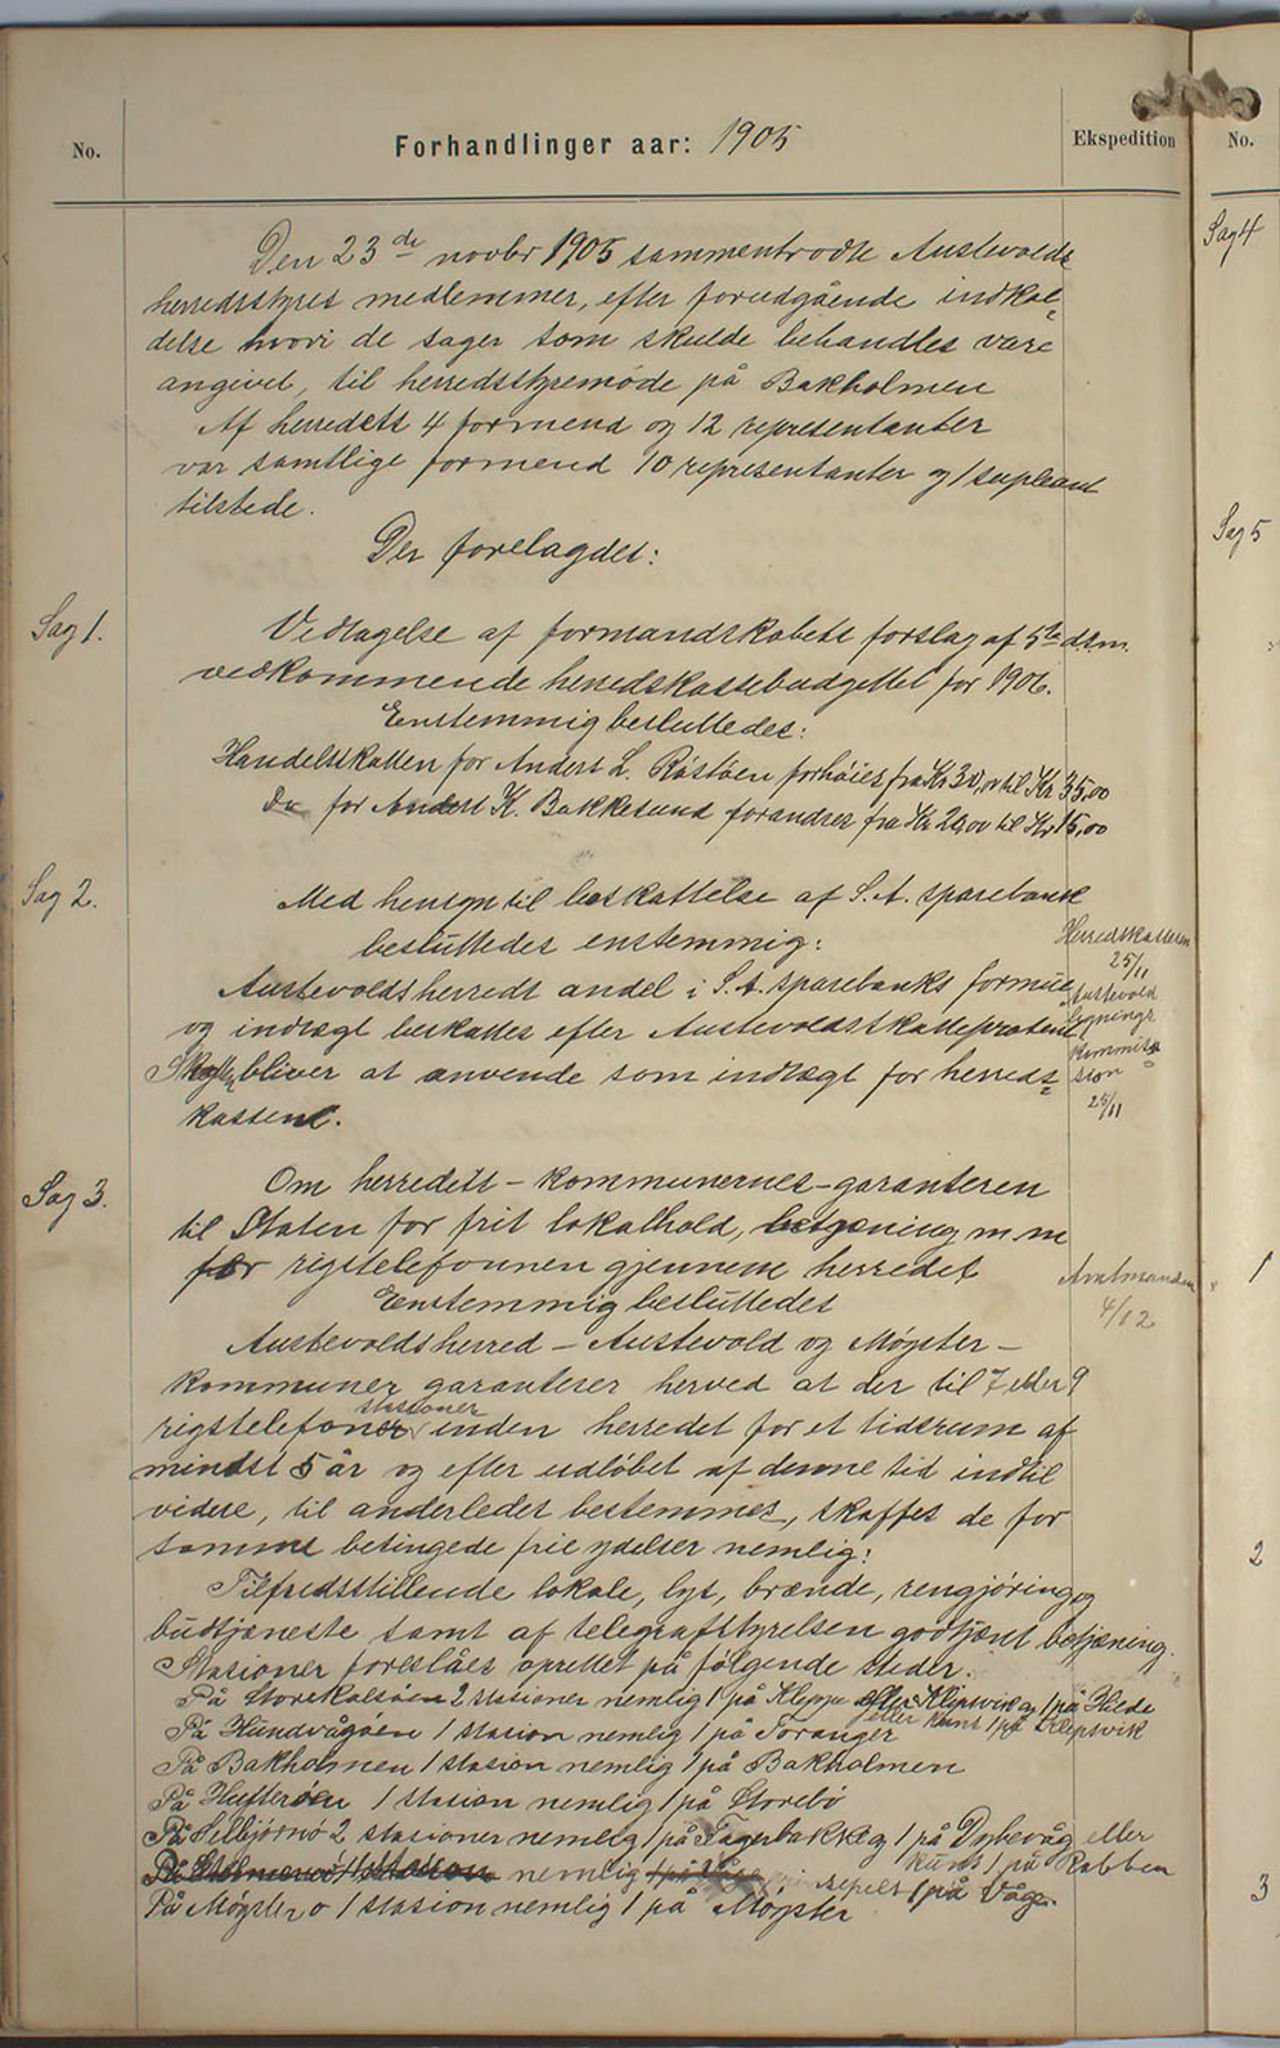 No.
Forhandlinger aar: 1905
Ekspedition
No.
Den 23de novbr 1905 sammentrodte Austevolds
herredsstyres medlemmer, efter forudgående indkal=
delse hvori de sager som skulde behandles vare
angivet, til herredsstyremøde på Bakholmen
Af herredets 4 formend og 12 representanter
var samtlige formend 10 representanter og 1 supleant
tilstede.
Der forelagdes:
Sag 1.
Vedtagelse af formandskabets forslag af 5te dsm.
vedkommende herredskassebudgettet for 1906.
Enstemmig besluttedes:
Handelsskatten for Anders L. Røstøen forhøies fra Kr 30,00 til Kr 35,00
Do for Anders K. Bakkesund forandres fra Kr 20,00 til Kr 15,00
Sag 2.
Med hensyn til beskattelse af S. A. sparebank
besluttedes enstemmig:
Austevoldsherreds andel i S. A. sparebanks formue
og indtægt beskattes efter Austevoldsskatteprosent
Skatten bliver at anvende som indtægt for herreds=
kassen.
Herredskasseren
25/11
Austevold
lignings
kommis=
sion
25/11
Sag 3.
Om herredets - kommunernes - garanteren
til Staten for frit lokalhold, betjening m. m
for rigstelefonnen gjennem herredet
Enstemmig besluttedes
Amtmanden
4/12
Austevoldsherred - Austevold og Møgster -
kommuner garanterer herved at der til 7 eller 9
rigstelefonstasioner inden herredet for et tidsrum af
mindst 5 år og efter udløbet af denne tid indtil
videre, til anderledes bestemmes, skaffes de for
samme betingede frie ydelser nemlig:
Tilfredsstillende lokale, lys, brænde, rengjøring og
budtjeneste samt af telegrafstyrelsen godkjent betjæning.
Stasioner foreslåes oprettet på følgende steder.
På Storekalsøen 2 stasioner nemlig 1 på Kleppe eller Klepsvik og 1 på Hilde
eller kuns 1 på Klepsvik
På Hundvågøen 1 stasion nemlig 1 på Toranger
På Bakholmen 1 stasion nemlig 1 på Bakholmen
På Hufterøen 1 stasion nemlig 1 på Storebø
På Selbjørnø 2 stasioner nemlig 1 på Fagerbakke og 1 på Dybevåg eller
kuns 1 på Rabben
nemlig
1 på Våge.
På Møgstero 1 stasion nemlig 1 på Møgster
Sag 4
Sag 5
1
2
3